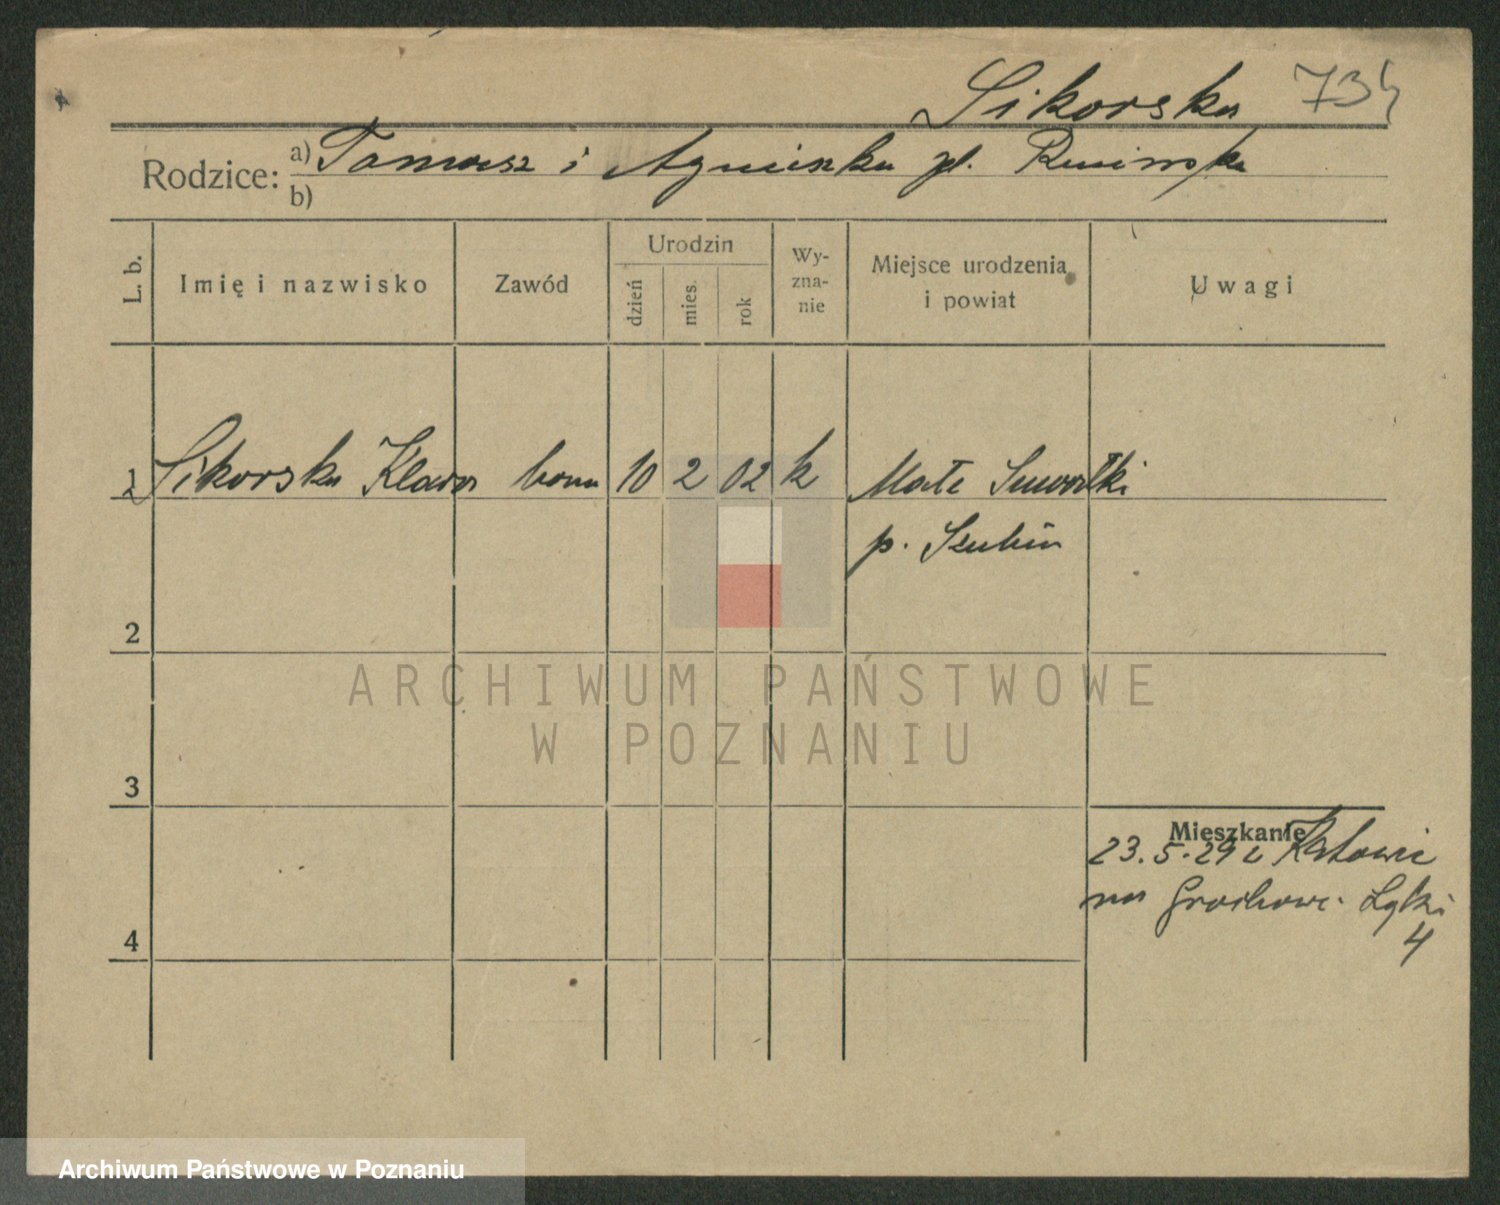 Sikorska 734
Rodzice: a) Tomasz i Agnieszka
b)
L. b.
Imię i nazwisko
Zawód
Urodzin
dzień
mies.
rok
Wy-
zna-
nie
Miejsce urodzenia
i powiat
Uwagi
1 Sikorska Klara bona 10 2 02 k Małe
p. Szubin
2
ARCHIWUM PAŃSTWOWE
W POZNANIU
3
Mieszkanie
23.5.29 z Katowic
na Grochowe Łąki
4
4
Archiwum Państwowe w Poznaniu